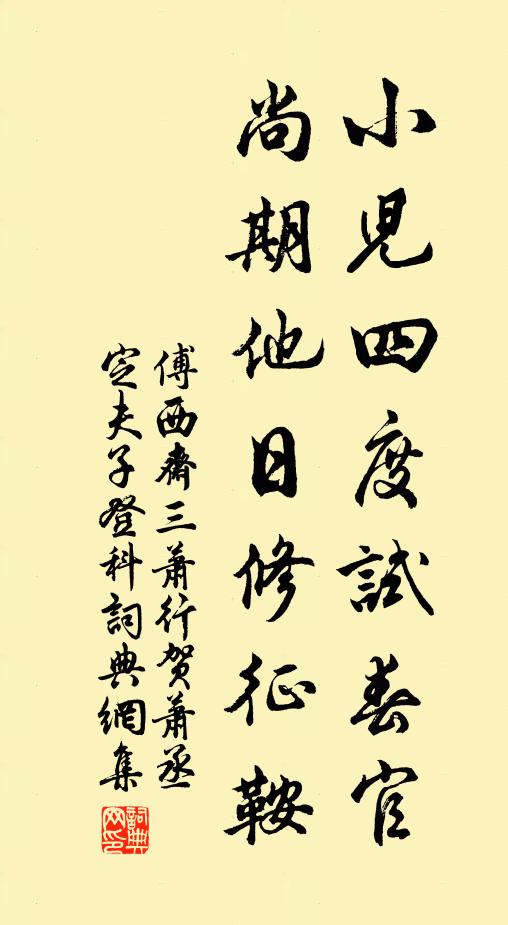 小兒四度試春官
尚期他日修征鞍
傅西齋三蕭行賀蕭丞
定夫子登科詞典網集
詞典
网印